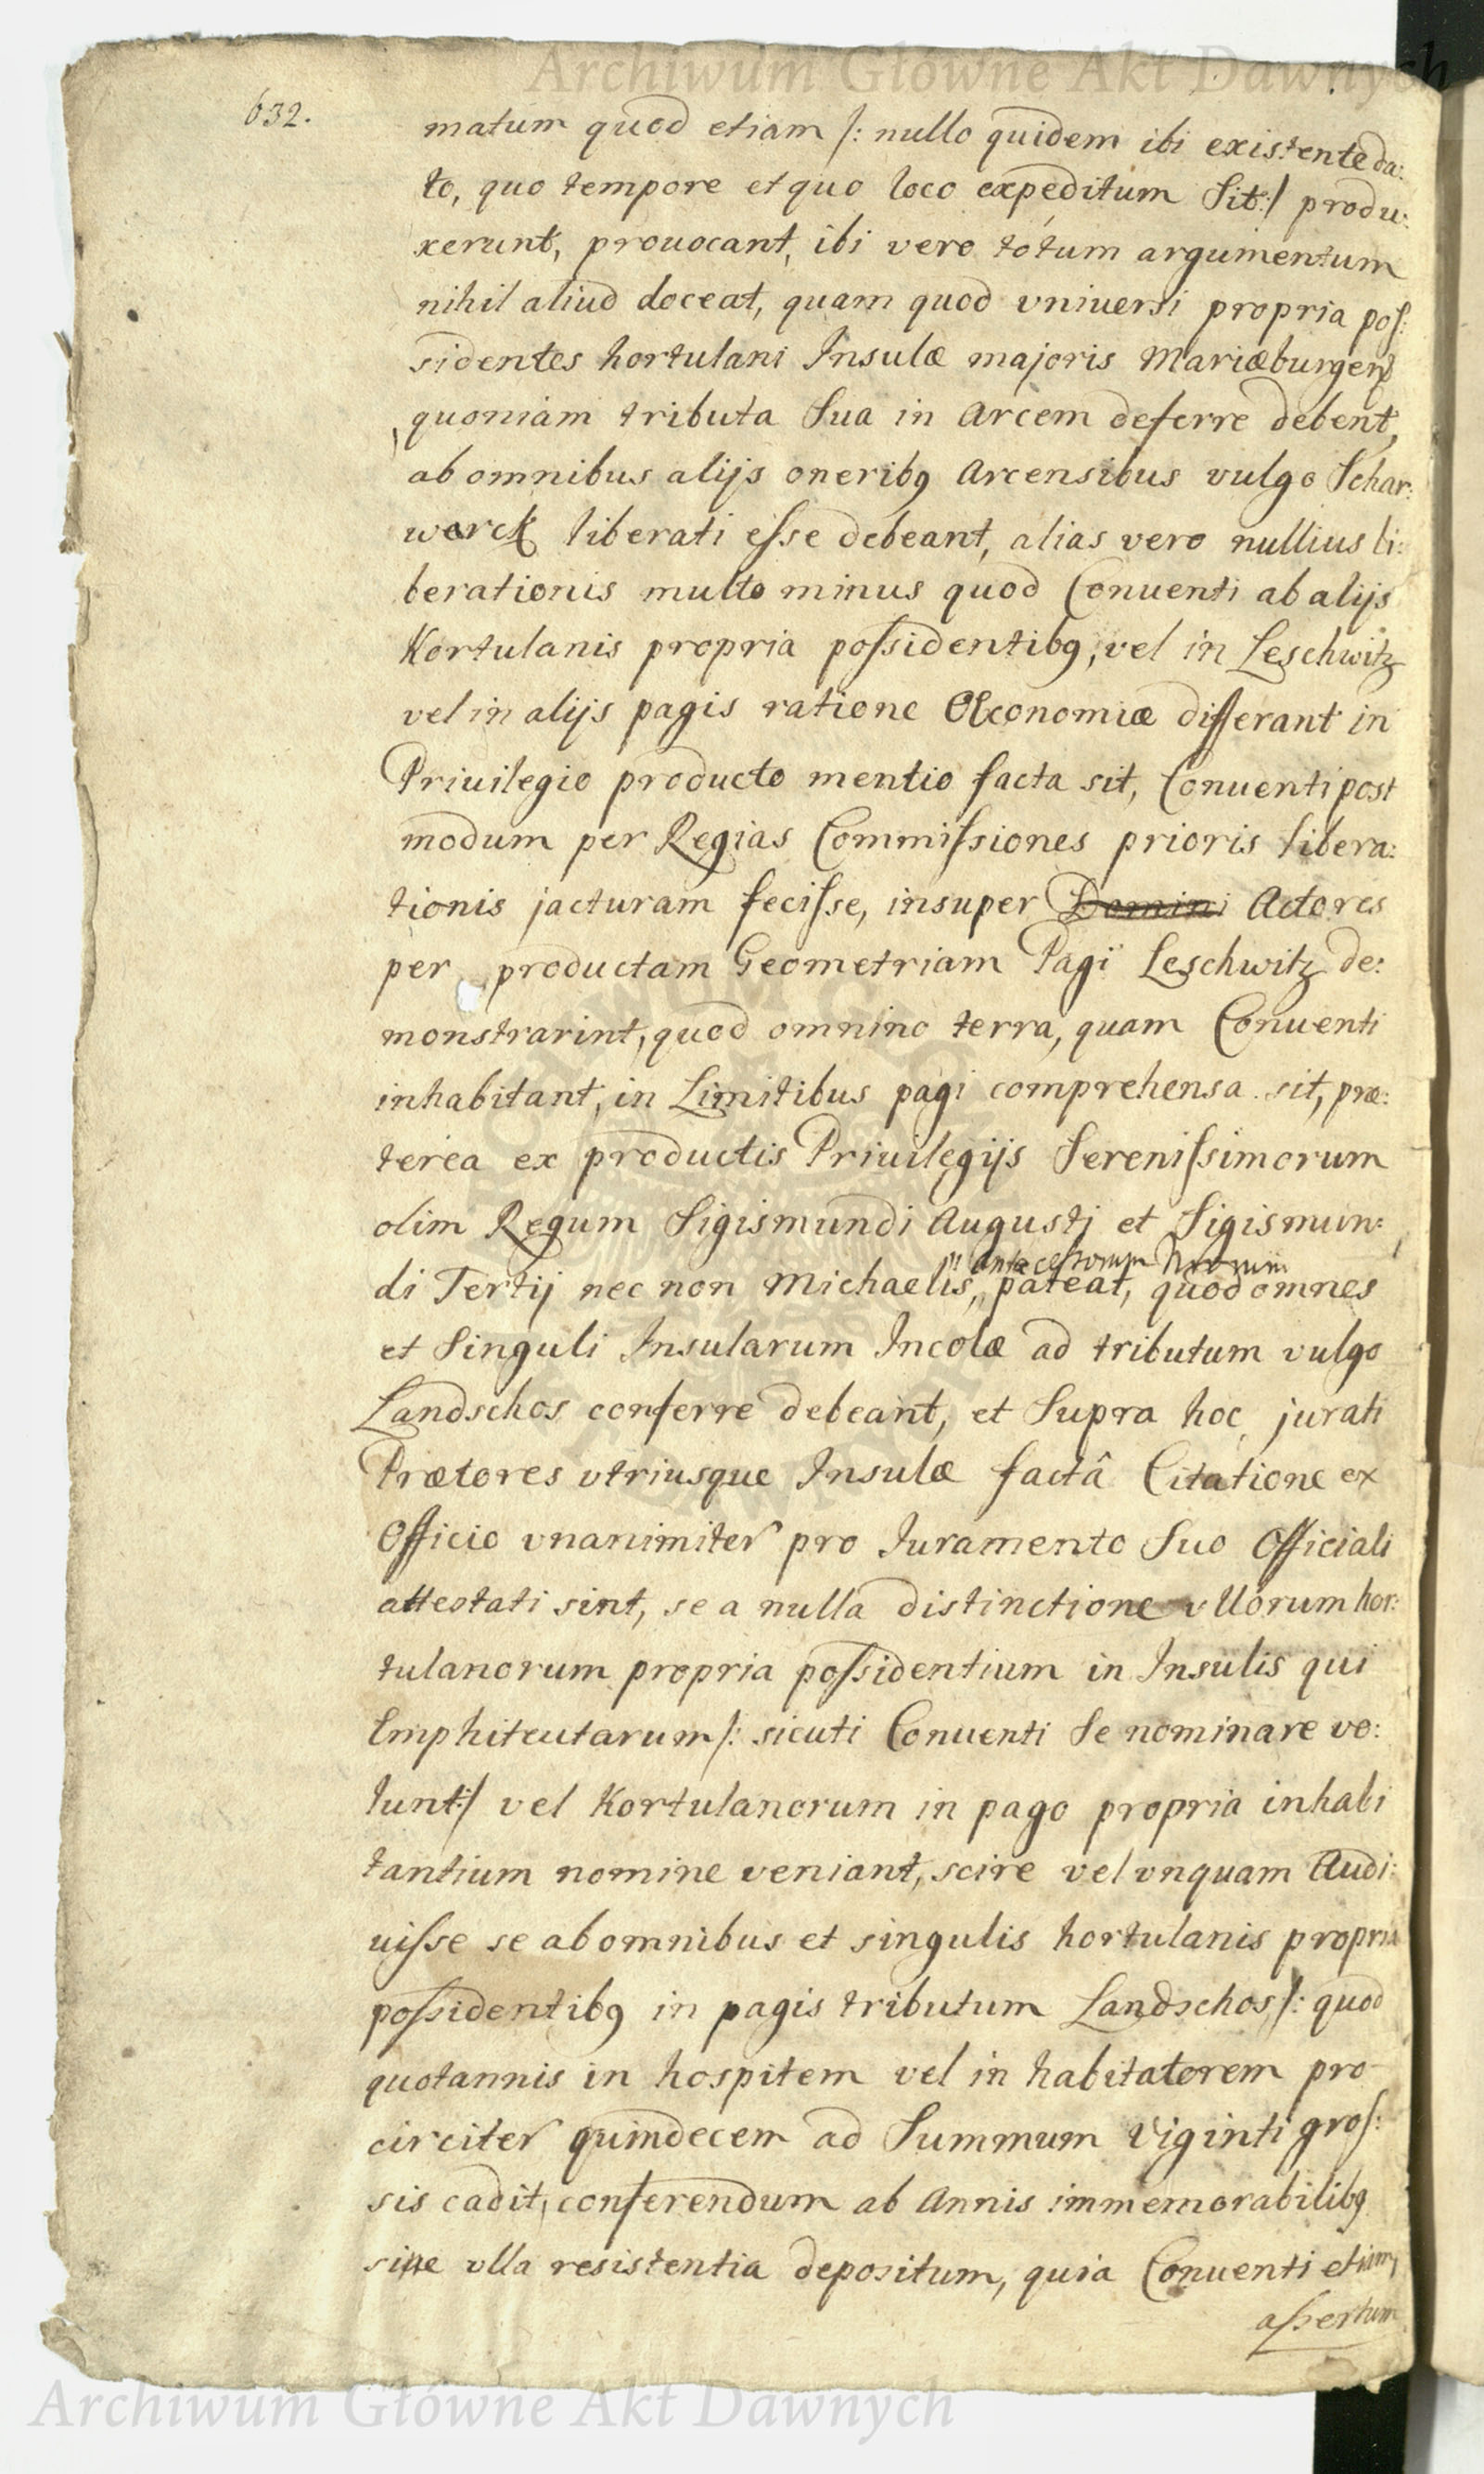 Archiwum Główne Akt Dawnych
632.
matum quod etiam /: nullo quidem ibi existente da:
to, quo tempore et quo loco expeditum Sit :/ produ:
xerunt, prouocant, ibi vero tótum argumentum
nihil aliud doceat, quam quod vniuersi propria pos:
sidentes hortulani Insulæ majoris Mariæburgens
quoniam tributa Sua in Arcem deferre debent,
ab omnibus alijs oneribq Arcensibus vulgo Schar:
werck liberati esse debeant, alias vero nullius li:
berationis multo minus quod Conuenti ab alijs
Hortulanis propria possidentibq, vel in Leschwitz
vel in alijs pagis ratione Œconomiæ differant in
Priuilegio producto mentio facta sit, Conuenti post
modum per Regias Commissiones prioris libera:
tionis jacturam fecisse, insuper Domini Actores
per productam Geometriam Pagi Leschwitz de:
monstrarint, quod omnino terra, quam Conuenti
inhabitant, in Limitibus pagi comprehensa sit, præ:
terea ex productis Priuilegijs Serenissimorum
olim Regum Sigismundi Augusti et Sigismun:
Antecessorum Nrorum
di Tertij nec non Michaelis, pateat, quod omnes
et Singuli Insularum Incolæ ad tributum vulgo
Landschos conferre debeant, et Supra hoc jurati
Prætores vtriusque Insulæ factâ Citatione ex
Officio vnanimiter pro Iuramento Suo Officiali
attestati sint, se a nulla distinctione vllorum hor:
tulanorum propria possidentium in Insulis qui
Emphiteutarum /: sicuti Conuenti Se nominare vo:
lunt :/ vel Hortulanorum in pago propria inhabi
tantium nomine veniant, scire vel vnquam Audi:
uisse se ab omnibus et singulis hortulanis propria
possidentibq in pagis tributum Landschos /: quod
quotannis in hospitem vel in habitatorem pro
circiter quindecem ad Summum Viginti gros:
sis cadit, conferendum ab Annis immemorabilibq
sine vlla resistentia depositum, quia Conuenti etiam
assertum
Archiwum Główne Akt Dawnych